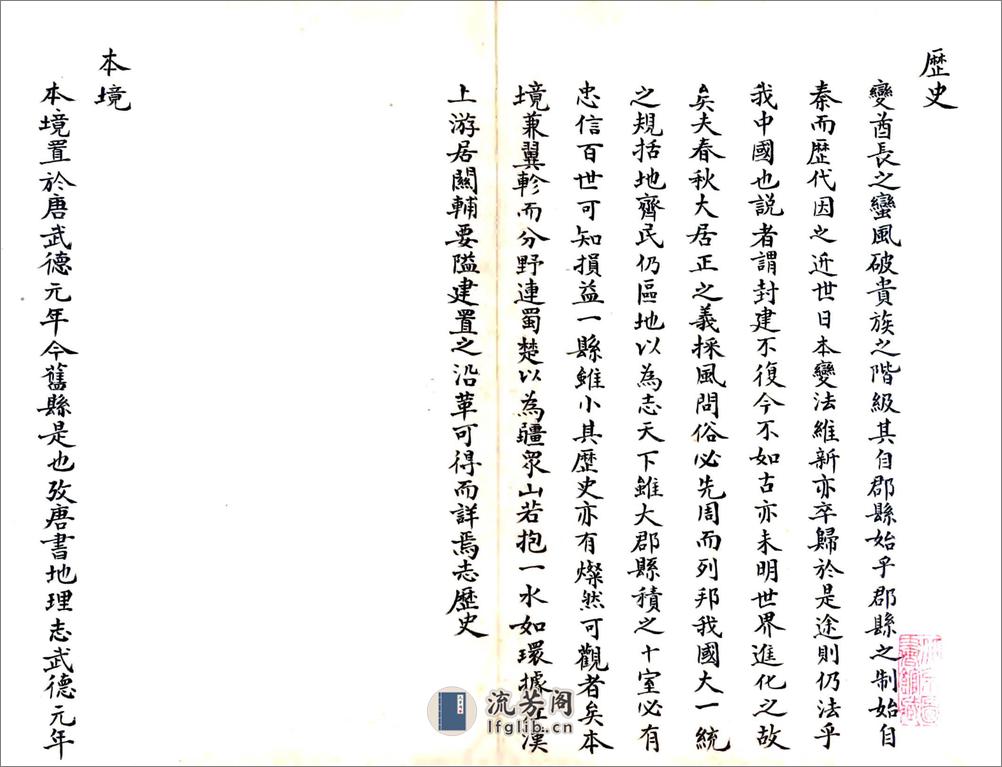 歷史
變酋長之蠻風破貴族之階級其自郡縣始乎郡縣之制始自
秦而歷代因之近世日本變法維新亦卒歸於是途則仍法乎
我中國也説者謂封建不復今不如古亦未明世界進化之故
矣夫春秋大居正之義採風問俗必先周而列邦我國大一統
之規括地齊民仍區地以為志天下雖大郡縣積之十室必有
忠信百世可知損益一縣雖小其歷史亦有燦然可觀者矣本
境兼翼軫而分野連蜀楚以為疆眾山若抱一水如環據江漢
上游居關輔要隘建置之沿革可得而詳焉志歷史
本境
本境置於唐武德元年今舊縣是也攷唐書地理志武德元年
流芳阁
lfglib.cn